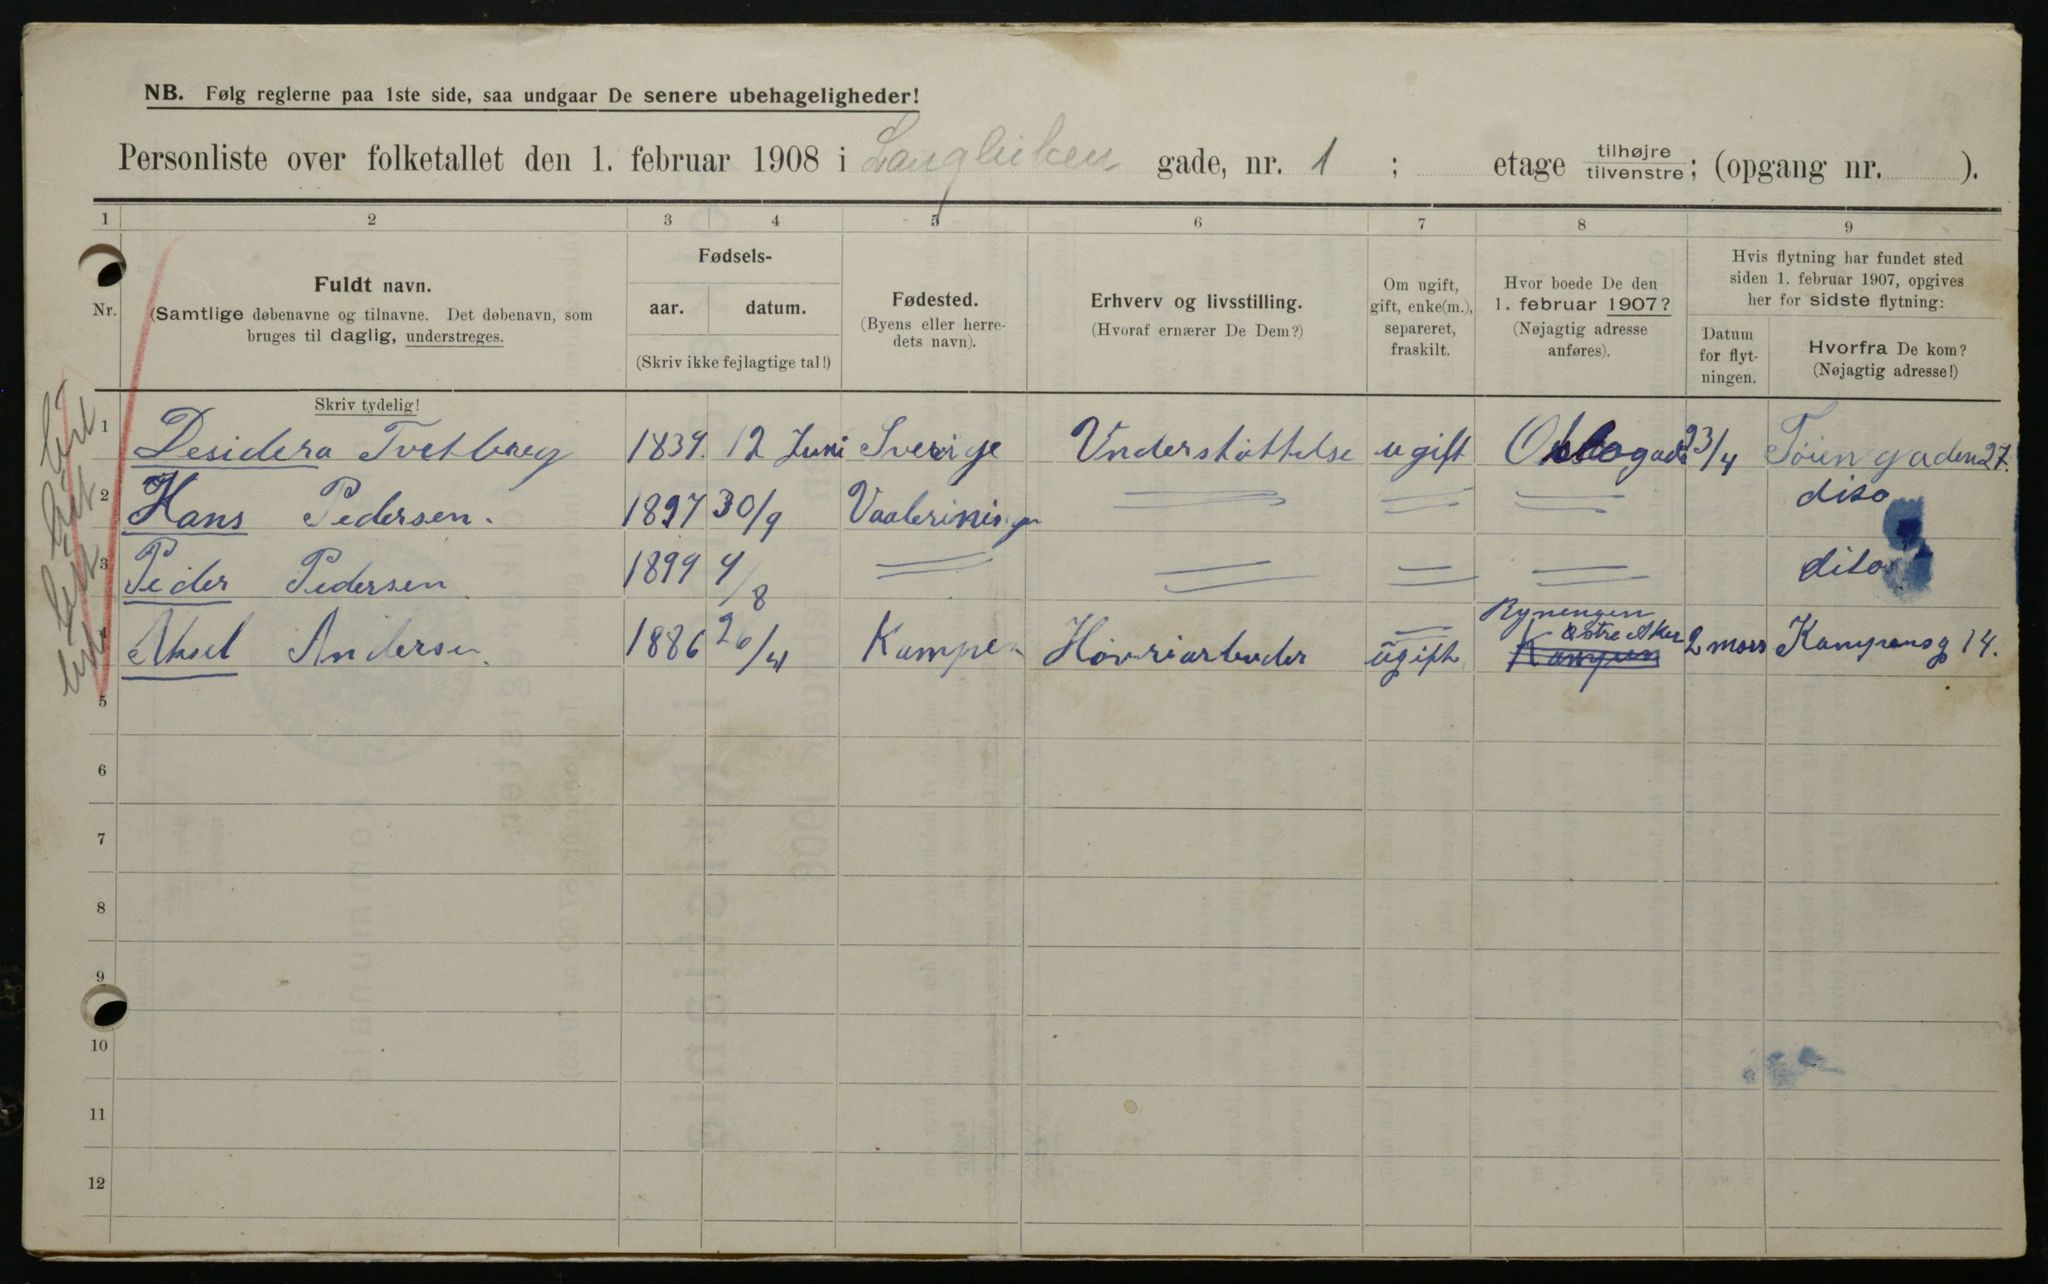 NB. Følg reglerne paa 1ste side, saa undgaar De senere ubehageligheder!
Personliste over folketallet den 1. februar 1908 i Langleiken gade, nr. 1 ; etage tilhøjre/tilvenstre; (opgang nr. ).
1 2 3 4 5 6 7 8 9
Nr.
Fuldt navn.
(Samtlige døbenavne og tilnavne. Det døbenavn, som
bruges til daglig, understreges.
Skriv tydelig!
Fødsels-
aar. datum.
(Skriv ikke fejlagtige tal!)
Fødested.
(Byens eller herre-
dets navn).
Erhverv og livsstilling.
(Hvoraf ernærer De Dem?)
Om ugift,
gift, enke(m.),
separeret,
fraskilt.
Hvor boede De den
1. februar 1907?
(Nøjagtig adresse
anføres).
Hvis flytning har fundet sted
siden 1. februar 1907, opgives
her for sidste flytning:
Datum
for flyt-
ningen.
Hvorfra De kom?
(Nøjagtig adresse!)
1 Desidera Tvetbreg 1839. 12 Juni Sverige Understøttelse ugift Oslogade 23/4 Töiengaden 27.
2 Hans Pedersen. 1897 30/9 Vaaleringen diso
3 Peder Pedersen. 1899 4/8 diso
4 Aksel Andersen. 1886 26/4 Kampen Hovriarbeder ugift Rynengen
Østre Aker
Kampen 2 mars Kampensg 14.
5
6
7
8
9
10
11
12